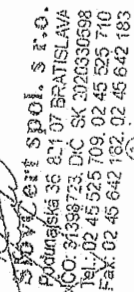 Slovcert spol. s r.o.
Podunajská 36 821 07 BRATISLAVA
IČO: 31398723, DIČ SK 2020330598
Tel.: 02 45 525 709, 02 45 525 710
Fax: 02 45 642 162, 02 45 642 183